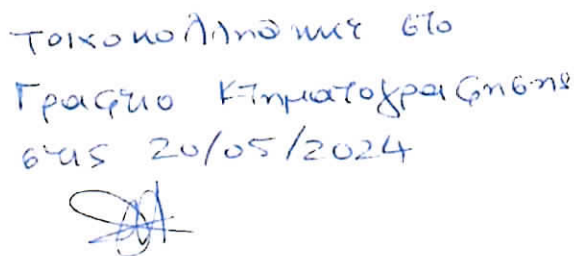 Τοιχοκολλήθηκε στο
Γραφείο Κτηματογράφησης
στις 20/05/2024